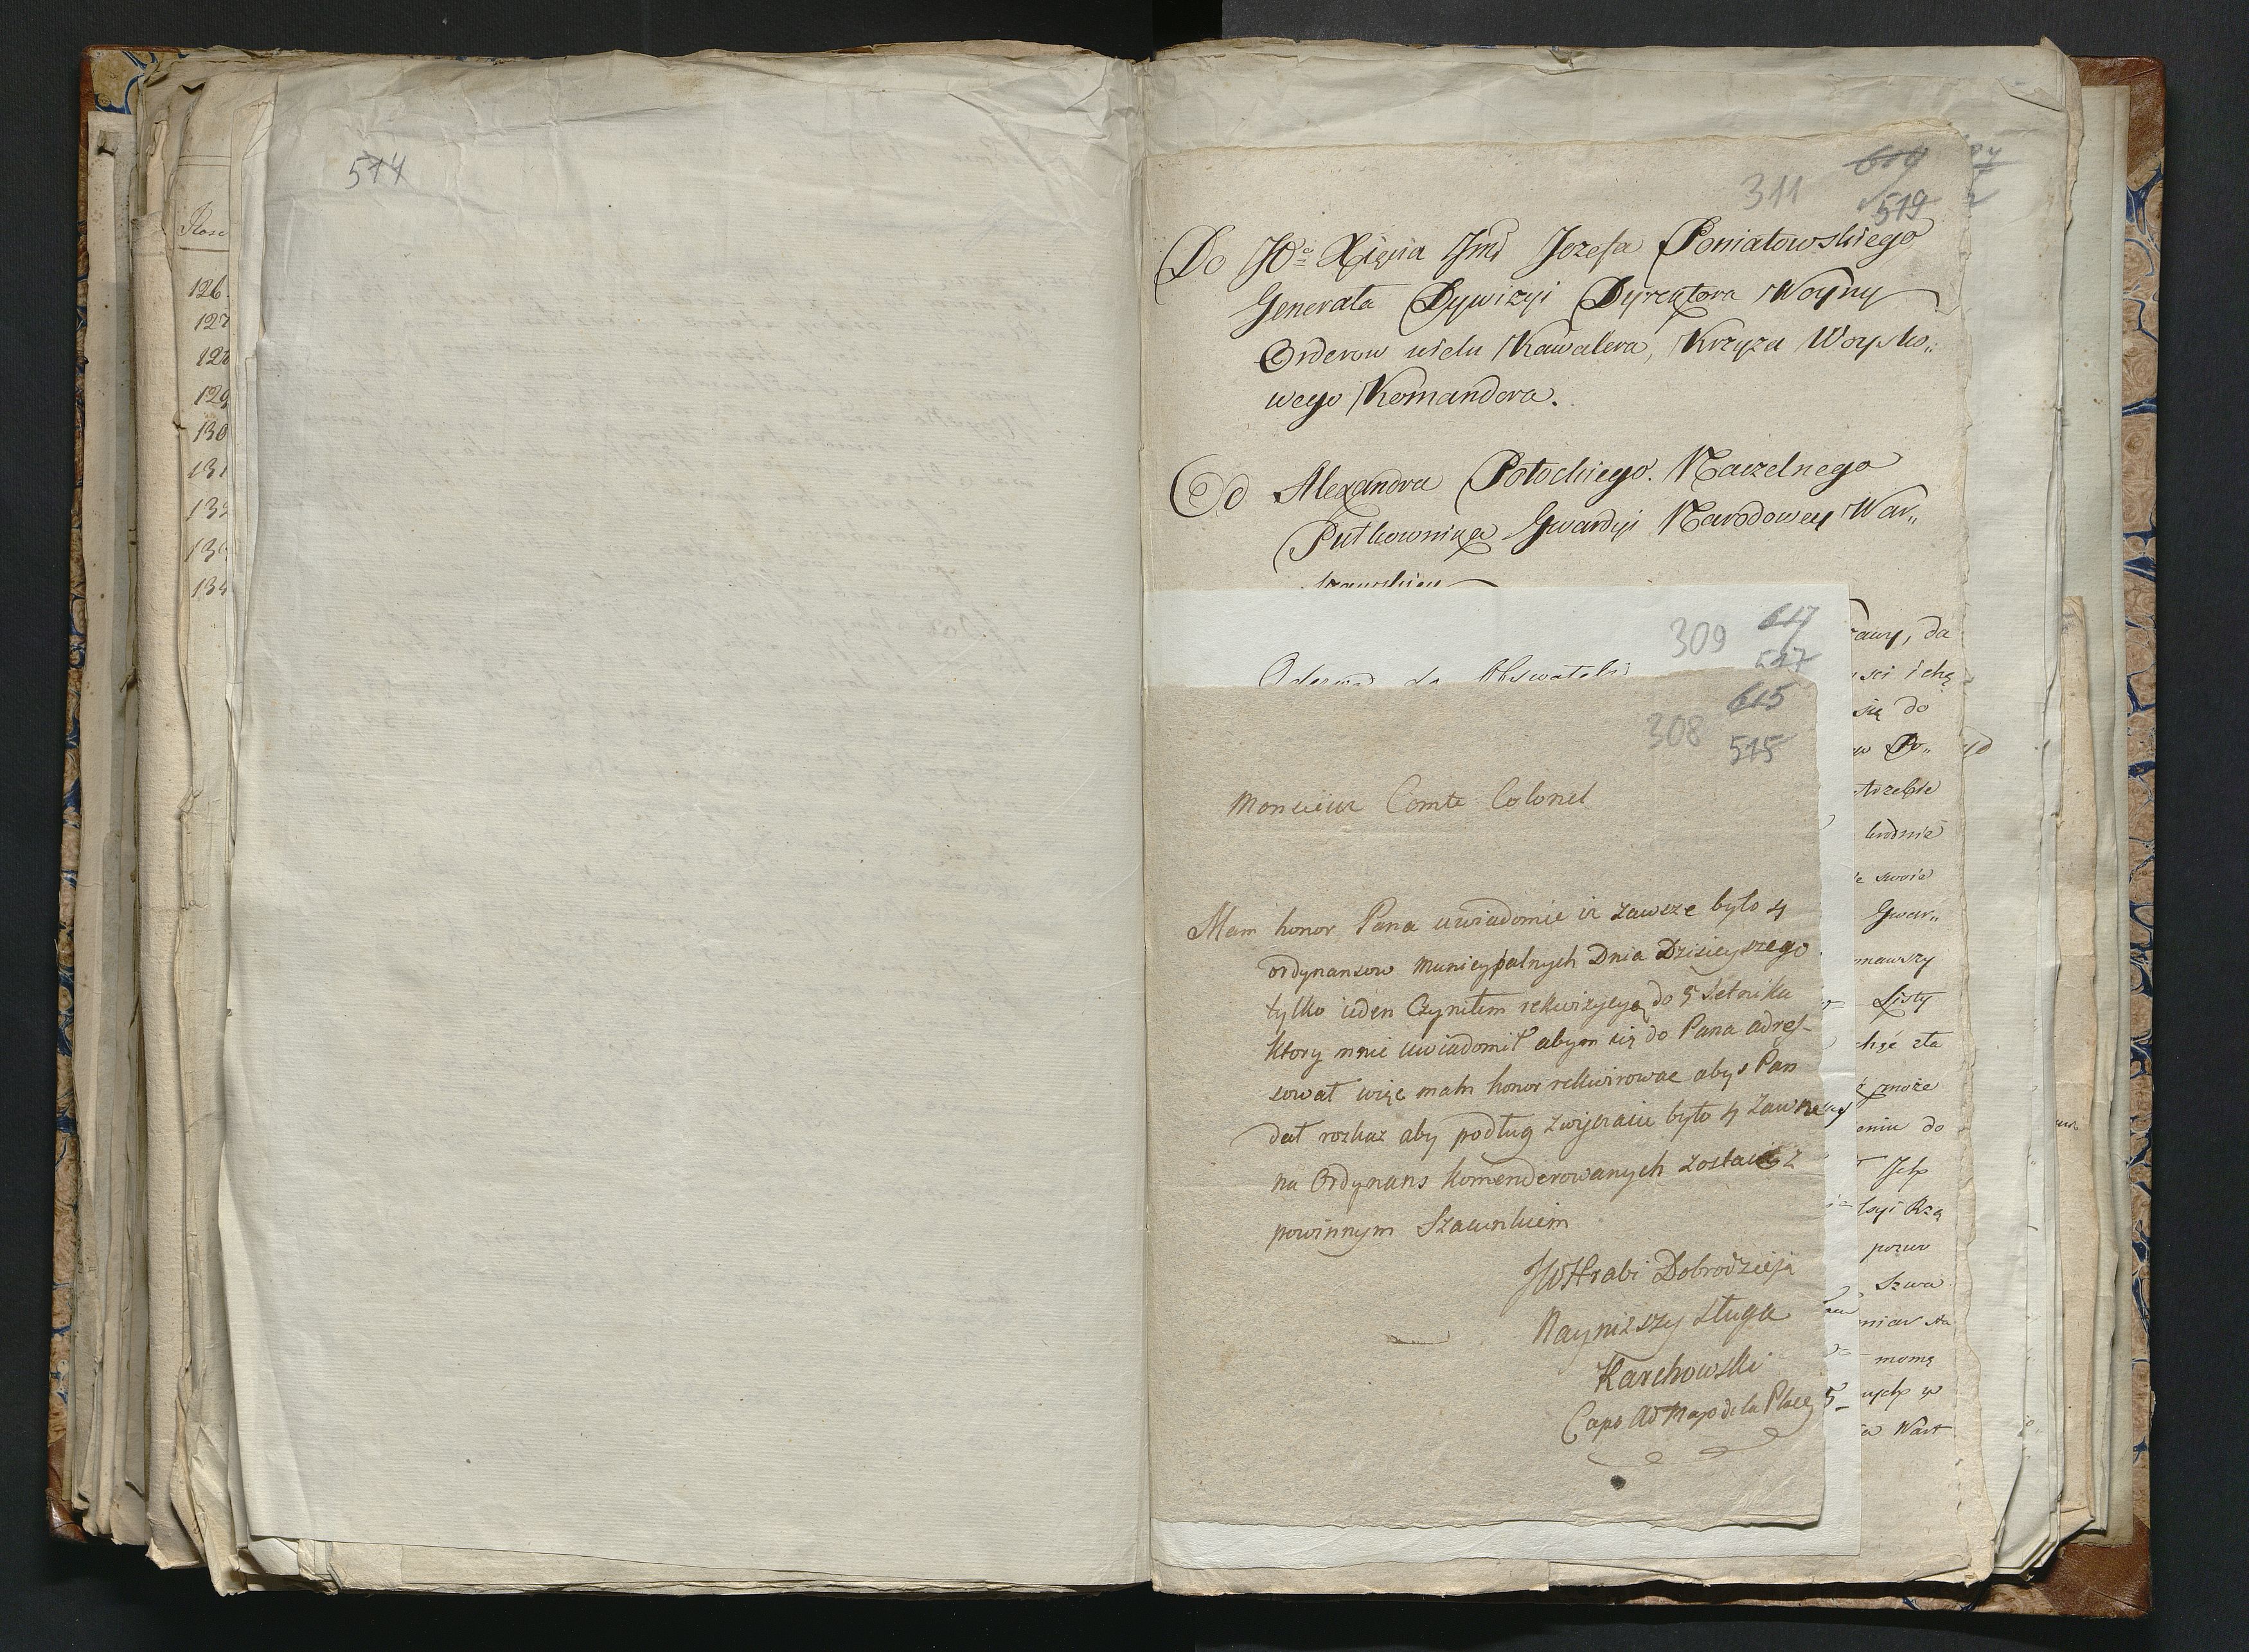 574
Ilosc
126.
127
128
129
130
131
311
619
519
Do JO Xięcia Jmi Jozefa Poniatowskiego
Generała Dywizyi Dyrektora Woyny
Orderow wielu Kawalera, Krzyża Woysko„
wego Komandora.
Od Alexandra Potockiego. Naczelnego
Pułkownika Gwardyi Narodowey War„
szawskiey
309
617
517
Odezwa do Obywateli
308
615
515
Monsieur Comte Colonel
Mam honor Pana uwiadomic iz zawsze było 4
ordynansow municypalnych Dnia Dzisieyszego
tylko ieden Czyniłem rekwizycyą do 5 setnika
ktory mnie uwiadomił abym się do Pana adres-
sował więc mam honor rekwirowac abys Pan
dał rozkaz aby podług zwyczaiu było 4 zawsze
na Ordynans komenderowanych zostaię z
powinnym Szacunkiem
JWHrabi Dobrodzieja
Nayniższy sługa
Karchowski
Cap Ad Majo de la Place
da
się do
Po„
swoie
Gwar„
Listy
może
do
Szwa
w